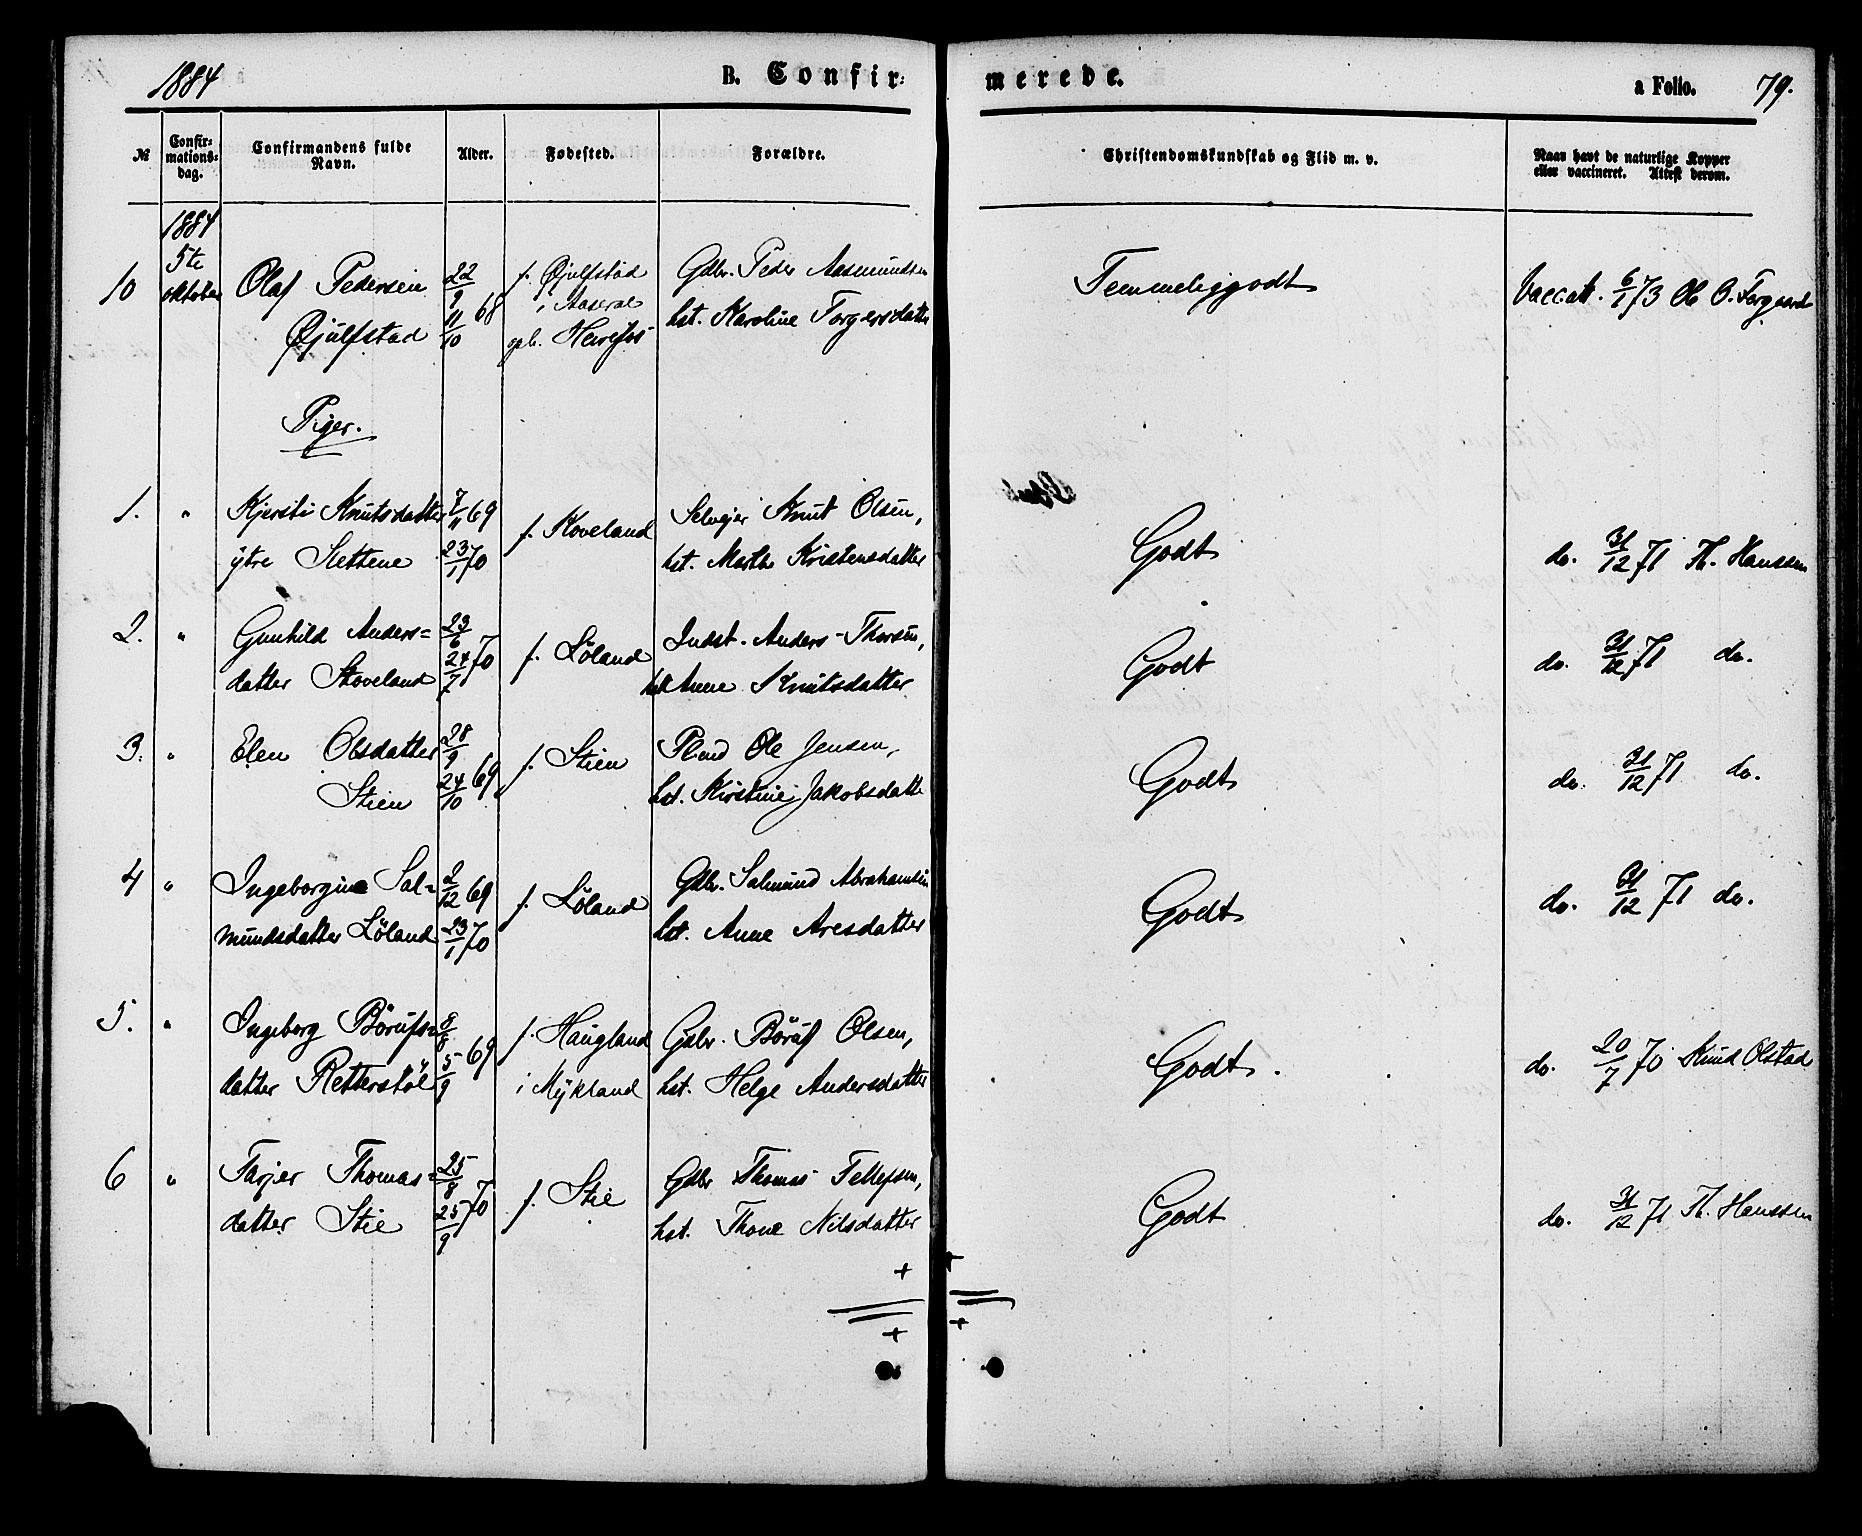 1884 B. Confir- merede. a Folio. 79.
№ Confir-mations-dag. Confirmandens fulde Navn. Alder. Fødested. Forældre. Christendomskundskab og Flid m. v. Naar havt de naturlige Kopper eller vaccineret. Attest derom.
1884
10 5te oktober Olaf Pedersen 22/9 f. Øjulfstad Gdbr. Peder Aasmundsen Temmeliggodt Vaccatt. 6/1 73 O. Torgaard
Øjulfstad 11/10 68 i Aaseral hst. Karoline Torgersdatter
Piger.
1. " Kjersti Knutsdatter 7/11 69 f. Koveland Selvejer Knut Olsen, Godt do. 31/12 71 H. Hanssen
ytre Slettene 23/1 70 hst. Marthe Kristensdatter
2. " Gunhild Anders= 23/6 f. Löland Indst. Anders Thorsen, Godt do. 31/12 71 do.
datter Skoveland 24/7 70 hst. Anne Knutsdatter
3. " Elen Olsdatter 28/9 f. Stien Ole Jensen, Godt do. 31/12 71 do.
Stien 24/10 69 hst. Kirstine Jakobsdatter
4 " Ingeborgine Sal= 2/12 69 f. Löland Gdbr. Salmund Abrahamsen Godt do. 31/12 71 do.
mundsdatter Löland 23/1 70 hst. Anne Aresdatter
5. " Ingeborg Börufs= 8/8 f. Haugland Gdbr. Böruf Olsen, Godt. do. 20/7 70 Knud Olstad
datter Retterstöl 5/9 69 i Mykland hst. Helge Andersdatter
6 " Tarjer Thomas= 25/8 f. Stie Gdbr Thomas Tellefsen, Godt do. 31/12 71 H. Hanssen
datter Stie 25/9 70 hst. Thone Nilsdatter